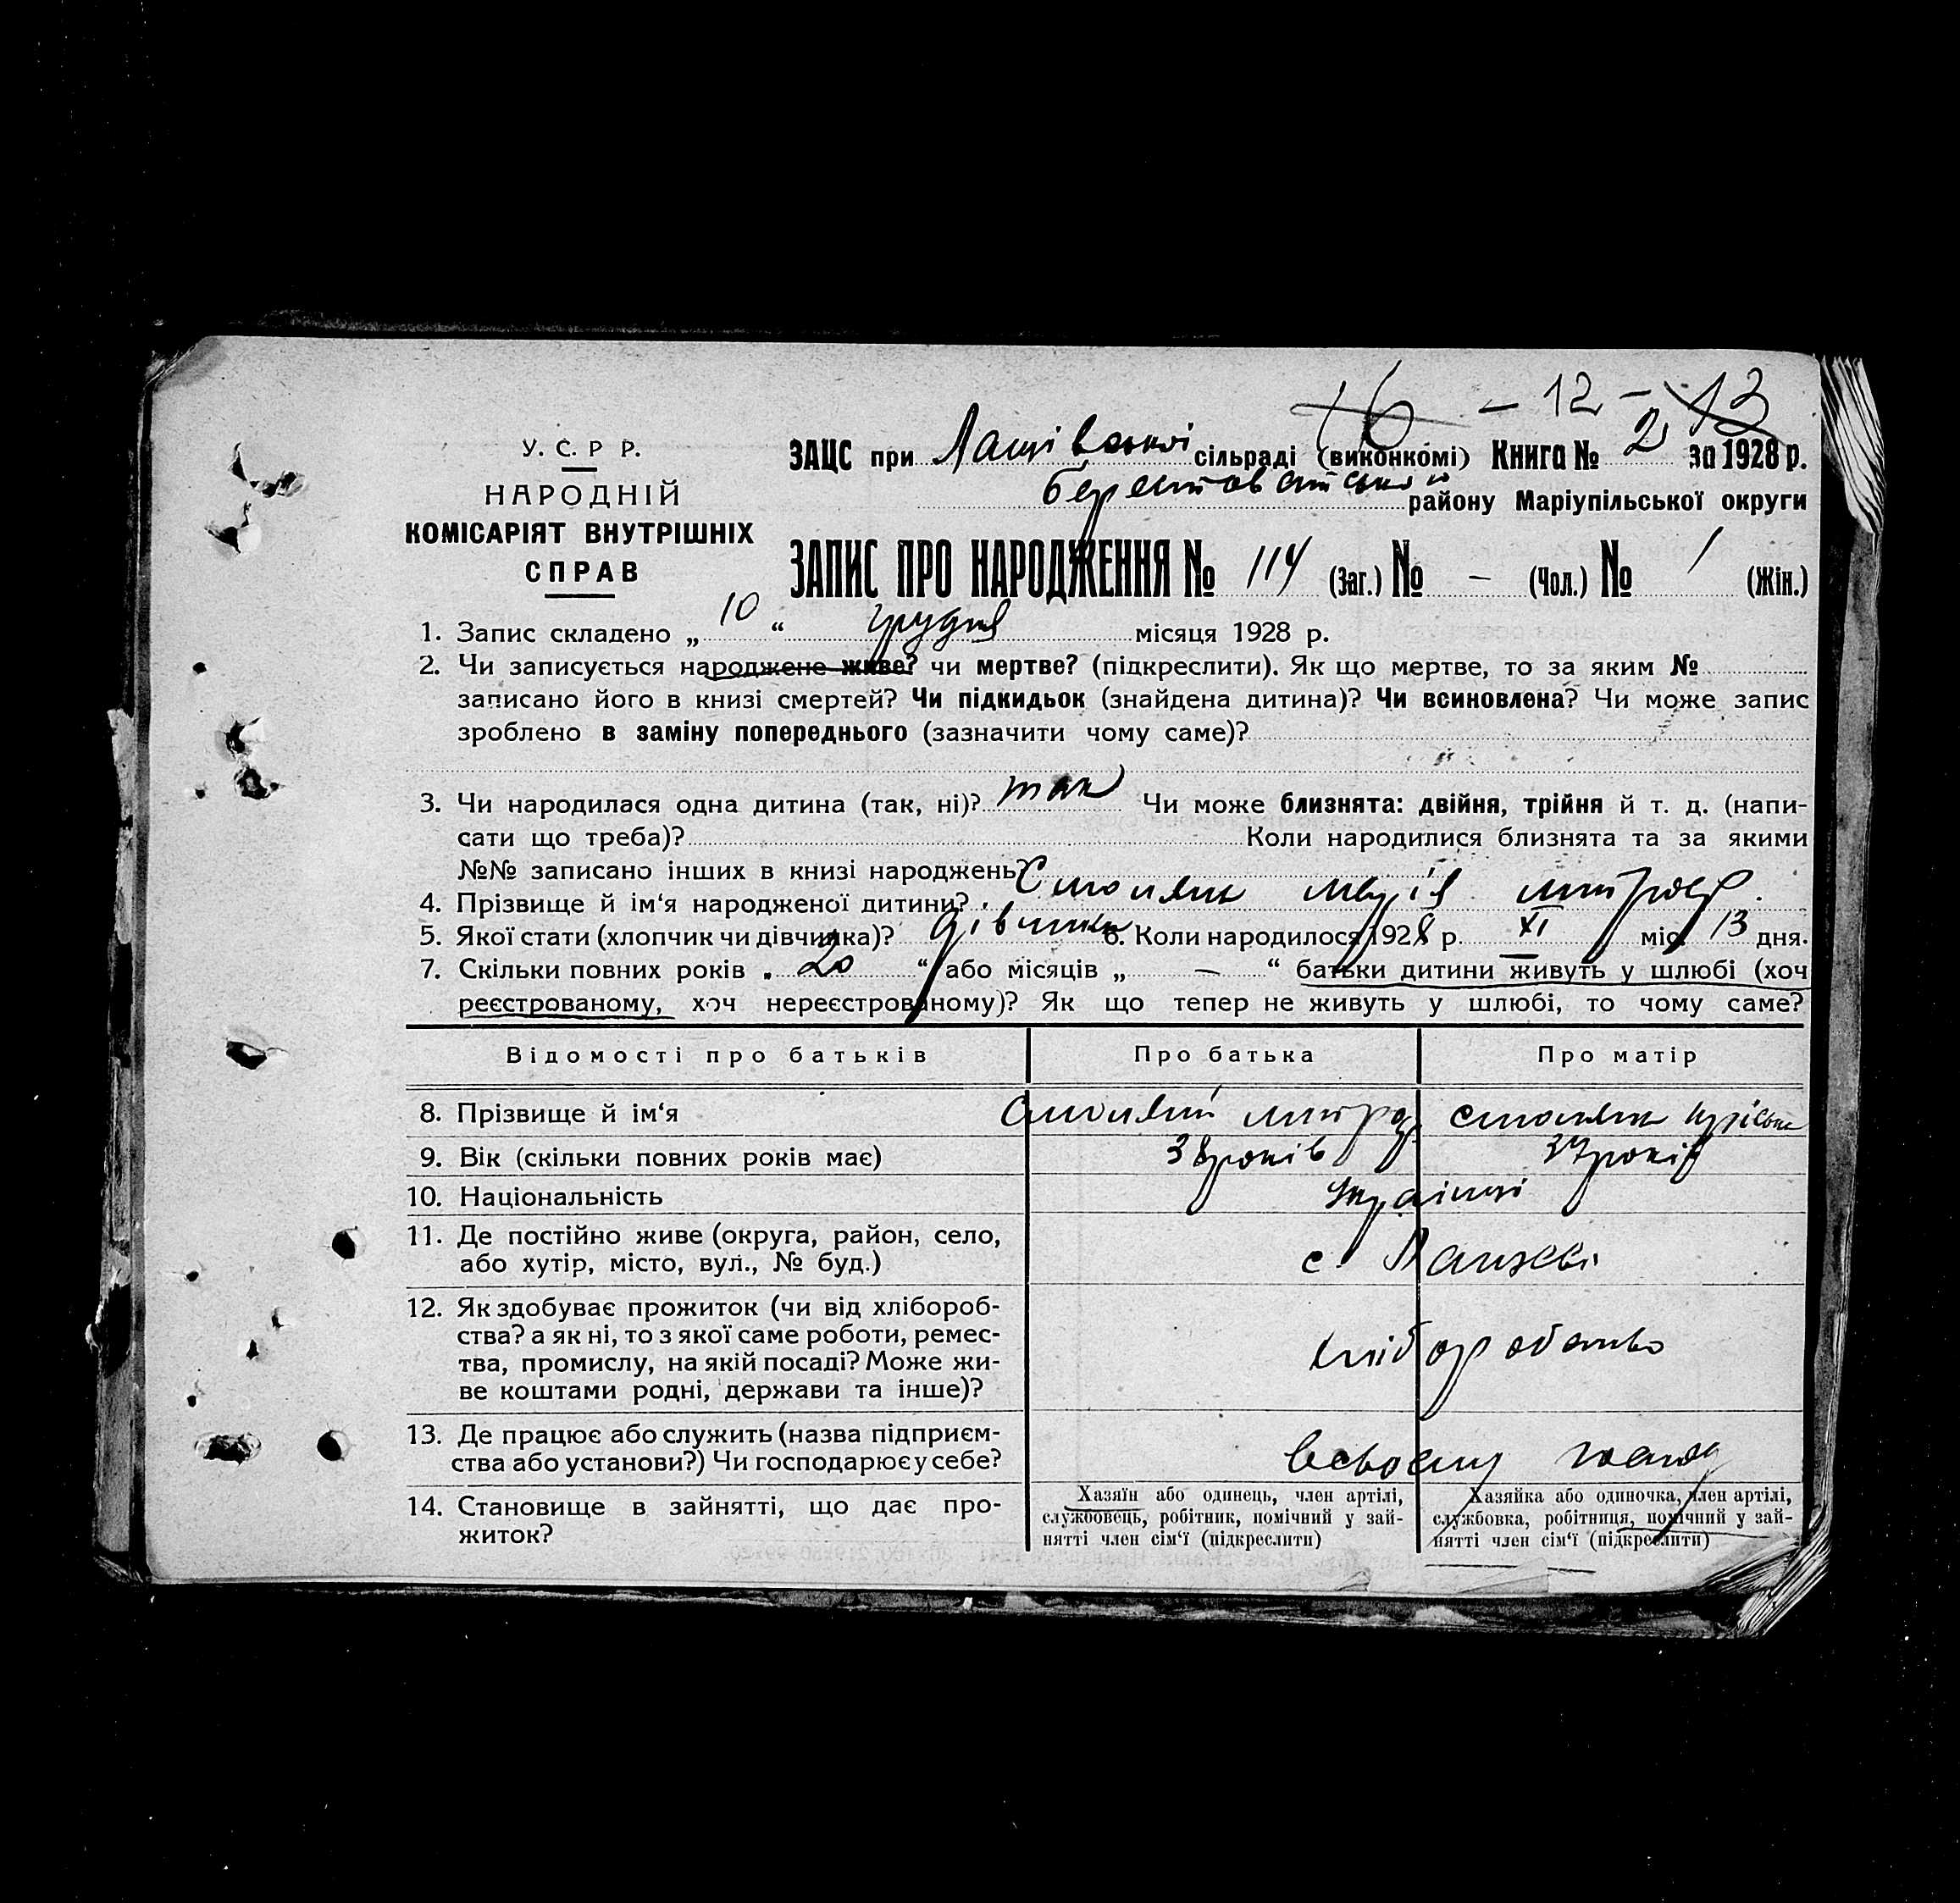 16 - 12 - 13
У. С. Р Р.
НАРОДНІЙ
КОМІСАРІЯТ ВНУТРІШНІХ
СПРАВ
ЗАЦС при сільраді (виконкомі) Книга № 2 за 1928 р.
району Маріупільської округи
ЗАПИС ПРО НАРОДЖЕННЯ № 114 (Заг.) № – (Чол.) № 1 (Жін.)
1. Запис складено „ 10 “ грудня місяця 1928 р.
2. Чи записується народжене живе? чи мертве? (підкреслити). Як що мертве, то за яким №
записано його в книзі смертей? Чи підкидьок (знайдена дитина)? Чи всиновлена? Чи може запис
зроблено в заміну попереднього (зазначити чому саме)?
3. Чи народилася одна дитина (так, ні)? так Чи може близнята: двійня, трійня й т. д. (напи-
сати що треба)? Коли народилися близнята та за якими
№№ записано інших в книзі народжень?
4. Прізвище й ім‘я народженої дитини? Марія
5. Якої стати (хлопчик чи дівчинка)? дівчинка 6. Коли народилося 1928 р. XI міс. 13 дня.
7. Скільки повних років „ 20 “ або місяців „ – “ батьки дитини живуть у шлюбі (хоч
реєстрованому, хоч нереєстрованому)? Як що тепер не живуть у шлюбі, то чому саме?
Відомості про батьків Про батька Про матір
8. Прізвище й ім‘я
9. Вік (скільки повних років має) 38 років 37 років
10. Національність Українці
11. Де постійно живе (округа, район, село,
або хутір, місто, вул., № буд.) с.
12. Як здобуває прожиток (чи від хлібороб-
ства? а як ні, то з якої саме роботи, ремес-
тва, промислу, на якій посаді? Може жи-
ве коштами родні, держави та інше)? хліборобство
13. Де працює або служить (назва підприєм-
ства або установи?) Чи господарює у себе? в своему
14. Становище в зайнятті, що дає про-
житок?
Хазяїн або одинець, член артілі,
службовець, робітник, помічний у зай-
нятті член сім‘ї (підкреслити)
Хазяйка або одиночка, член артілі,
службовка, робітниця, помічний у зай-
нятті член сім‘ї (підкреслити)